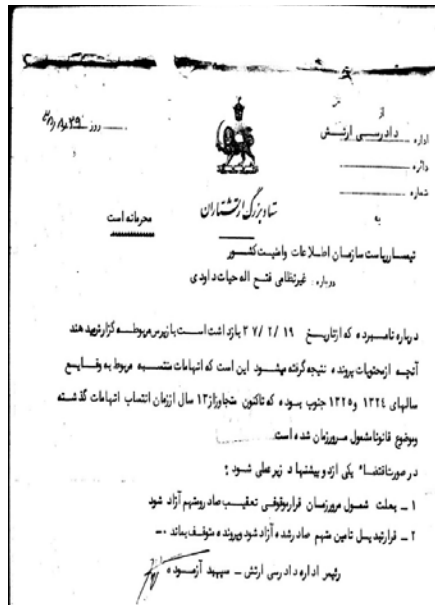 از
اداره دادرسی ارتش
روز ۲۹
دائره
شماره
ستاد بزرگ ارتشتاران
به
محرمانه است
تیمسار ریاست سازمان اطلاعات وامنیت کشور
درباره غیرنظامی فتح اله حیات داودی
درباره نامبرده که ازتاریخ ۳۷/۲/۱۹ بازداشت است بازپرس مربوطه گزارش میدهند
آنچه ازمحتویات پرونده نتیجه گرفته میشود این است که اتهامات منتسبه مربوط به وقایع
سالهای ۱۳۲٤ و۱۳۲۵ جنوب بوده که تاکنون متجاوزاز۱۳ سال اززمان انتساب اتهامات گذشته
وموضوع قانونا مشمول مرورزمان شده است
درصورت اقتضاء یکی ازدوپیشنهاد زیرعملی شود :
۱ ـ بعلت شمول مرورزمان قرارموقوفی تعقیب صادرومتهم آزاد شود
۲ ـ قرارتبدیل تامین متهم صادرشده آزاد شود وپرونده متوقف بماند ۰ـ
رئیس اداره دادرسی ارتش ـ سپهبد آزموده